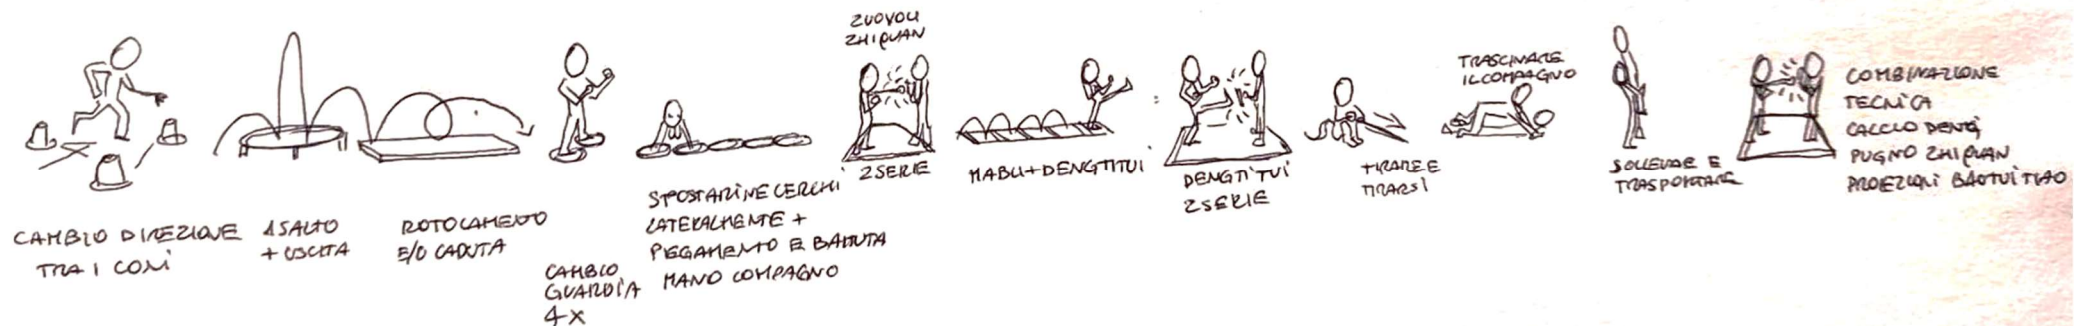 CAMBIO DIREZIONE
TRA I CONI
1 SALTO
+ USCITA
ROTOLAMENTO
E/O CADUTA
CAMBIO
GUARDIA
4X
SPOSTARSI NE CERCHI
LATERALMENTE +
PIEGAMENTO E BATTUTA
MANO COMPAGNO
ZUOYOU
ZHIQUAN
2 SERIE
MABU + DENGTITUI
DENGTITUI
2 SERIE
TIRARE E
TIRARSI
TRASCINARE
IL COMPAGNO
SOLLEVARE E
TRASPORTARE
COMBINAZIONE
TECNICA
CALCIO DENG
PUGNO ZHIQUAN
PROIEZIONI BAOTUI